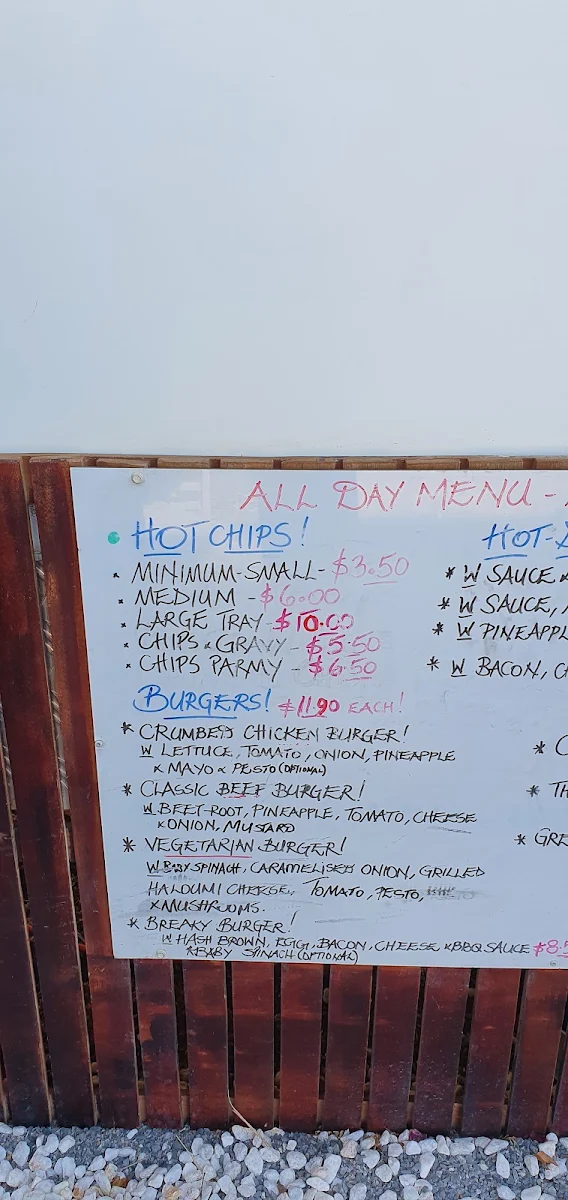 ALL DAY MENU -
HOT CHIPS!
MINIMUM-SMALL- $3.50
MEDIUM - $6.00
LARGE TRAY - $10.00
CHIPS & GRAVY - $5.50
CHIPS PARMY - $6.50
BURGERS! $11.90 EACH!
* CRUMBED CHICKEN BURGER!
W LETTUCE, TOMATO, ONION, PINEAPPLE
& MAYO & PESTO (OPTIONAL)
* CLASSIC BEEF BURGER!
W BEET-ROOT, PINEAPPLE, TOMATO, CHEESE
& ONION, MUSTARD
* VEGETARIAN BURGER!
W BABY SPINACH, CARAMELISED ONION, GRILLED
HALOUMI CHEESE, TOMATO, PESTO,
& MUSHROOMS.
* BREAKY BURGER!
W HASH BROWN, EGG, BACON, CHEESE & BBQ SAUCE $8.5
& BABY SPINACH (OPTIONAL)
HOT-D
* W SAUCE &
* W SAUCE,
* W PINEAPPL
* W BACON, C
* C
* TH
* GRE